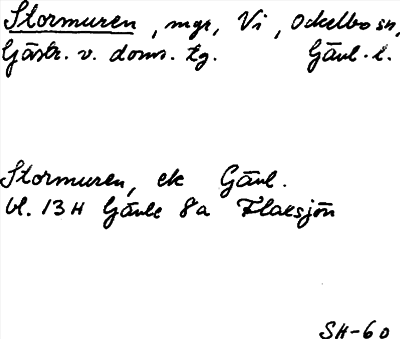 Stormuren, mgr, Vi, Ockelbo sn,
Gästr. v. doms. tg. Gävl. l.
Stormuren, ek Gävl.
bl. 13 H Gävle 8a Flaxsjön
SH-60